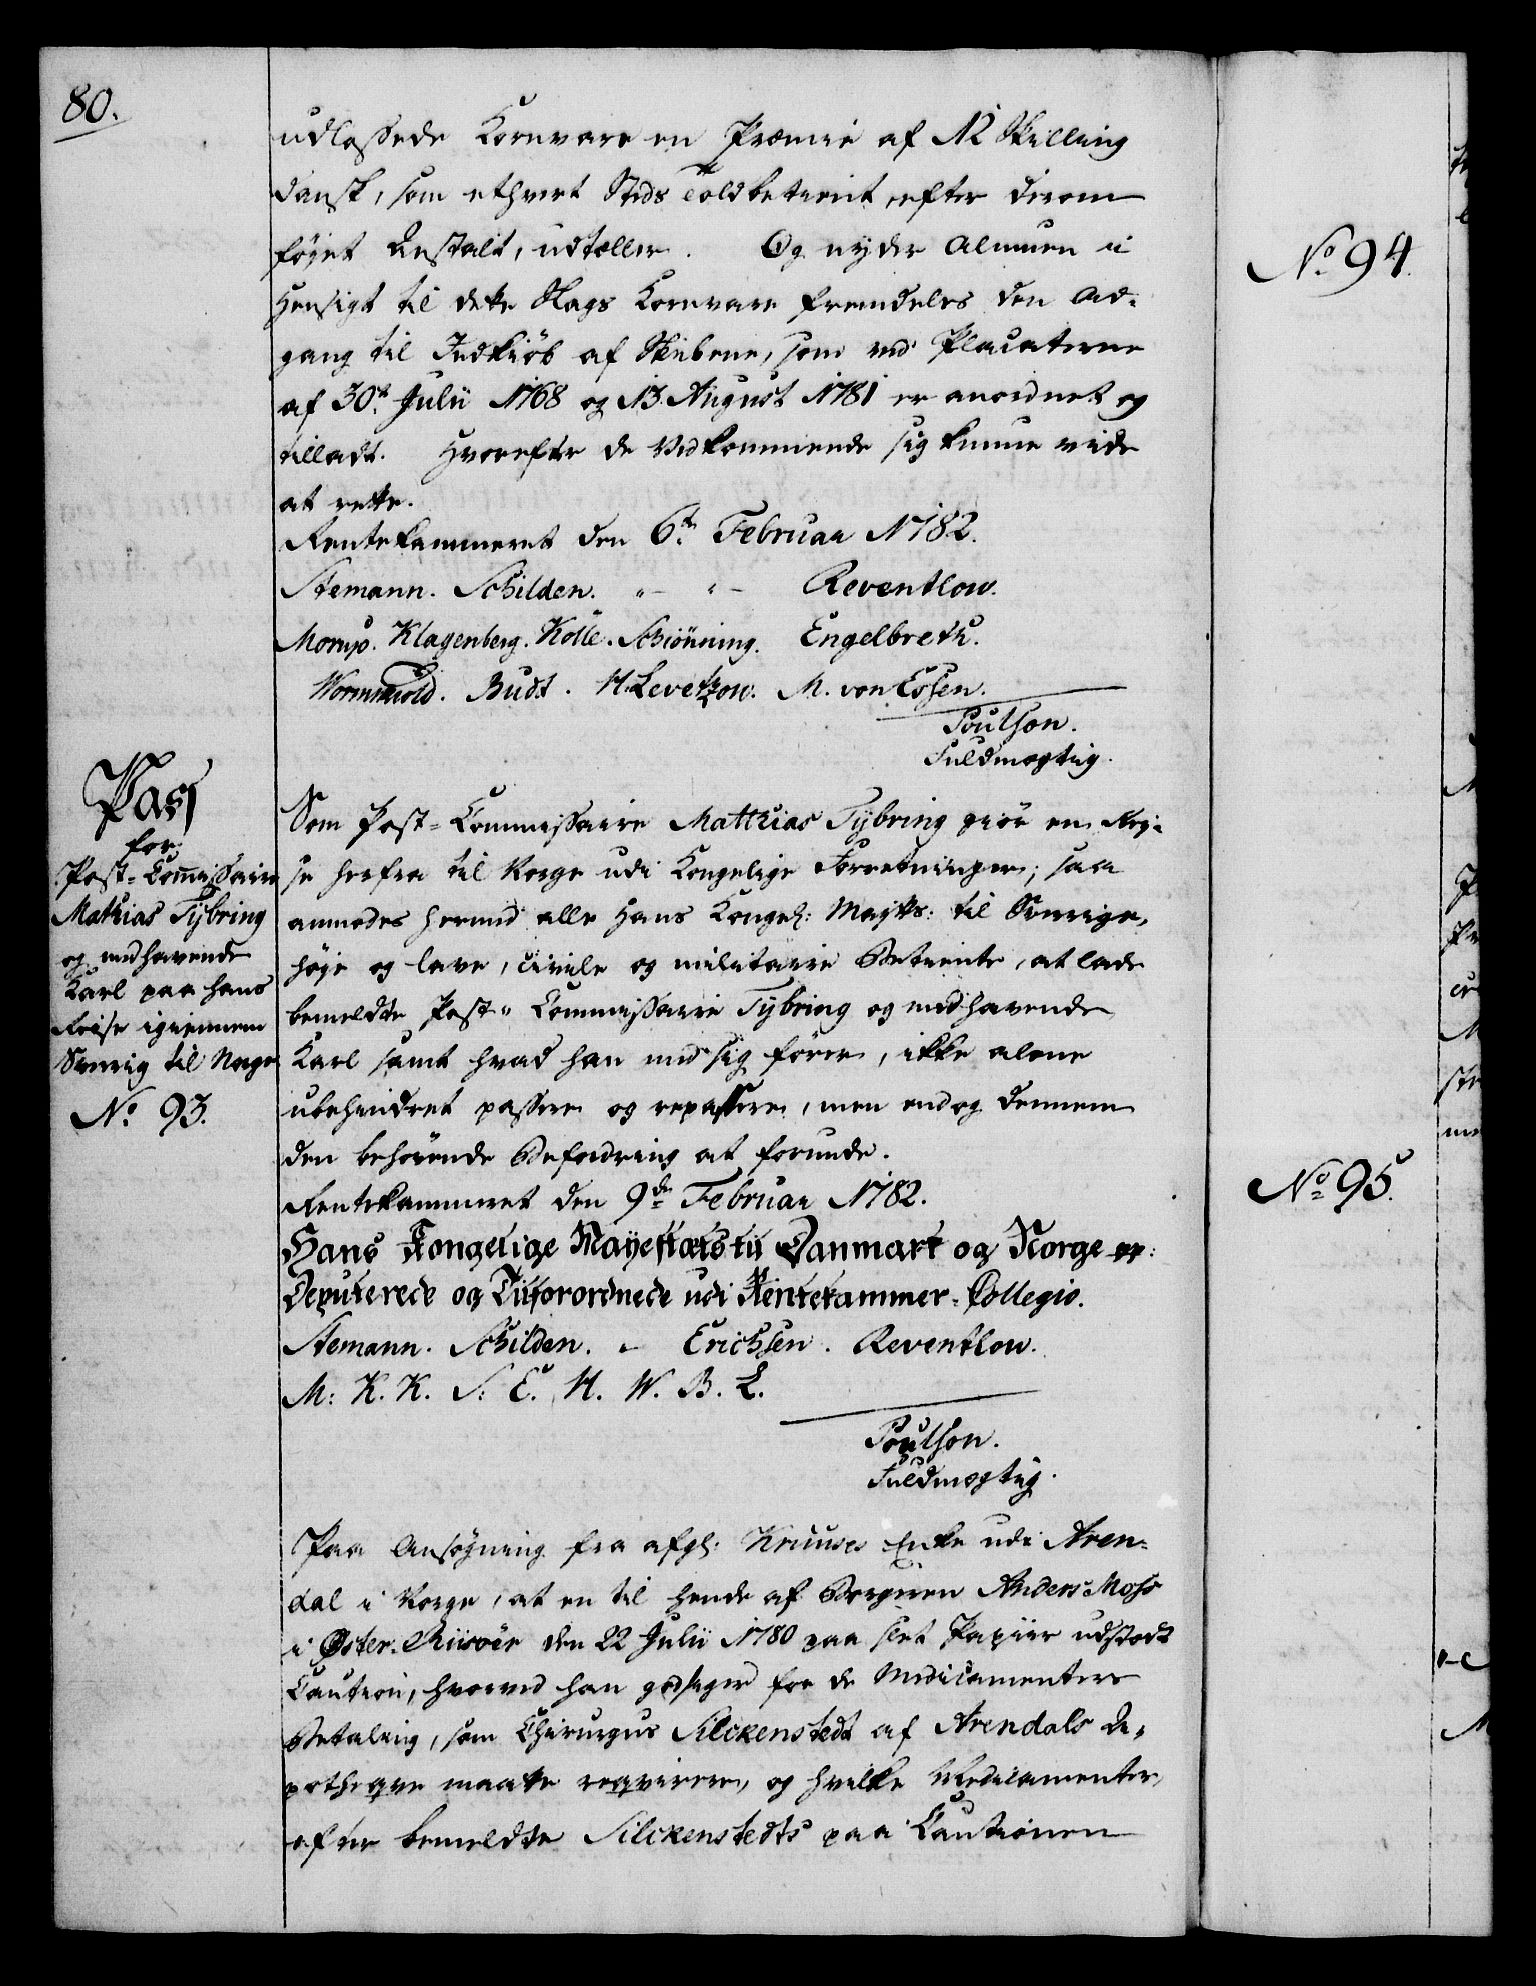 80.
udlossede Kornvare en Præmie af 12 Skilling
dansk, som ethvert Steds Toldbetient, efter derom
føyet Anstalt, udtæller. Og nyder Almuen i
Hensigt til dette Slags Kornvare fremdeles den Ad-
gang til Indkiöb af Skibene, som ved Placaterne
af 30te Julii 1768 og 13 August 1781 er anordnet og
tilladt. Hvorefter de Vedkommende sig kunne vide
at rette.
Rentekammeret den 6te Februar 1782.
Stemann. Schilden. " - " - Reventlow.
Morup. Klagenberg. Kölle. Schiönning. Engelbreth.
Wormskiold. Budt. H. Levetzow. M. von Essen.
Poulson.
Fuldmægtig.
Pass
for
Post-Commissaire
Mathias Tybring
og medhavende
Karl paa hans
Reise igiennem
Sverrig til Norge
No. 93.
Som Post-Commissaire Matthias Tybring giör en Rey-
se herfra til Norge udi Kongelige Forretninger; saa
anmodes herved alle Hans Kongel: Mayts: til Sverrige,
høye og lave, civile og militaire Betiente, at lade
bemeldte Post-Commissaire Tybring og medhavende
Karl samt hvad han med sig fører, ikke alene
ubehindret passere og repassere, men endog dennem
den behövende Befordring at forunde.
Rentekammeret den 9de Februar 1782.
Hans Kongelige Mayestæts til Danmark og Norge pp:
Deputerede og Tilforordnede udi Rentekammer-Collegio.
Stemann. Schilden. - Erichsen. Reventlow.
M: K. K. S: E. H. W. B. L.
Poulson.
Fuldmægtig.
Paa Ansøgning fra afgl: Kruuses Enke udi Aren-
dal i Norge, at en til hende af Borgeren Anders Moss
i Øster-Riisöer den 22 Julii 1780 paa slet Papiir udstædt
Caution, hvorved han godsiger for de Medicamenters
Betaling, som Chirurgus Silckenstedt af Arendals A-
potheqve maatte reqvirere, og hvilke Medicamenter,
efter bemeldte Silckenstedts paa Cautionen
No. 94.
No. 95.